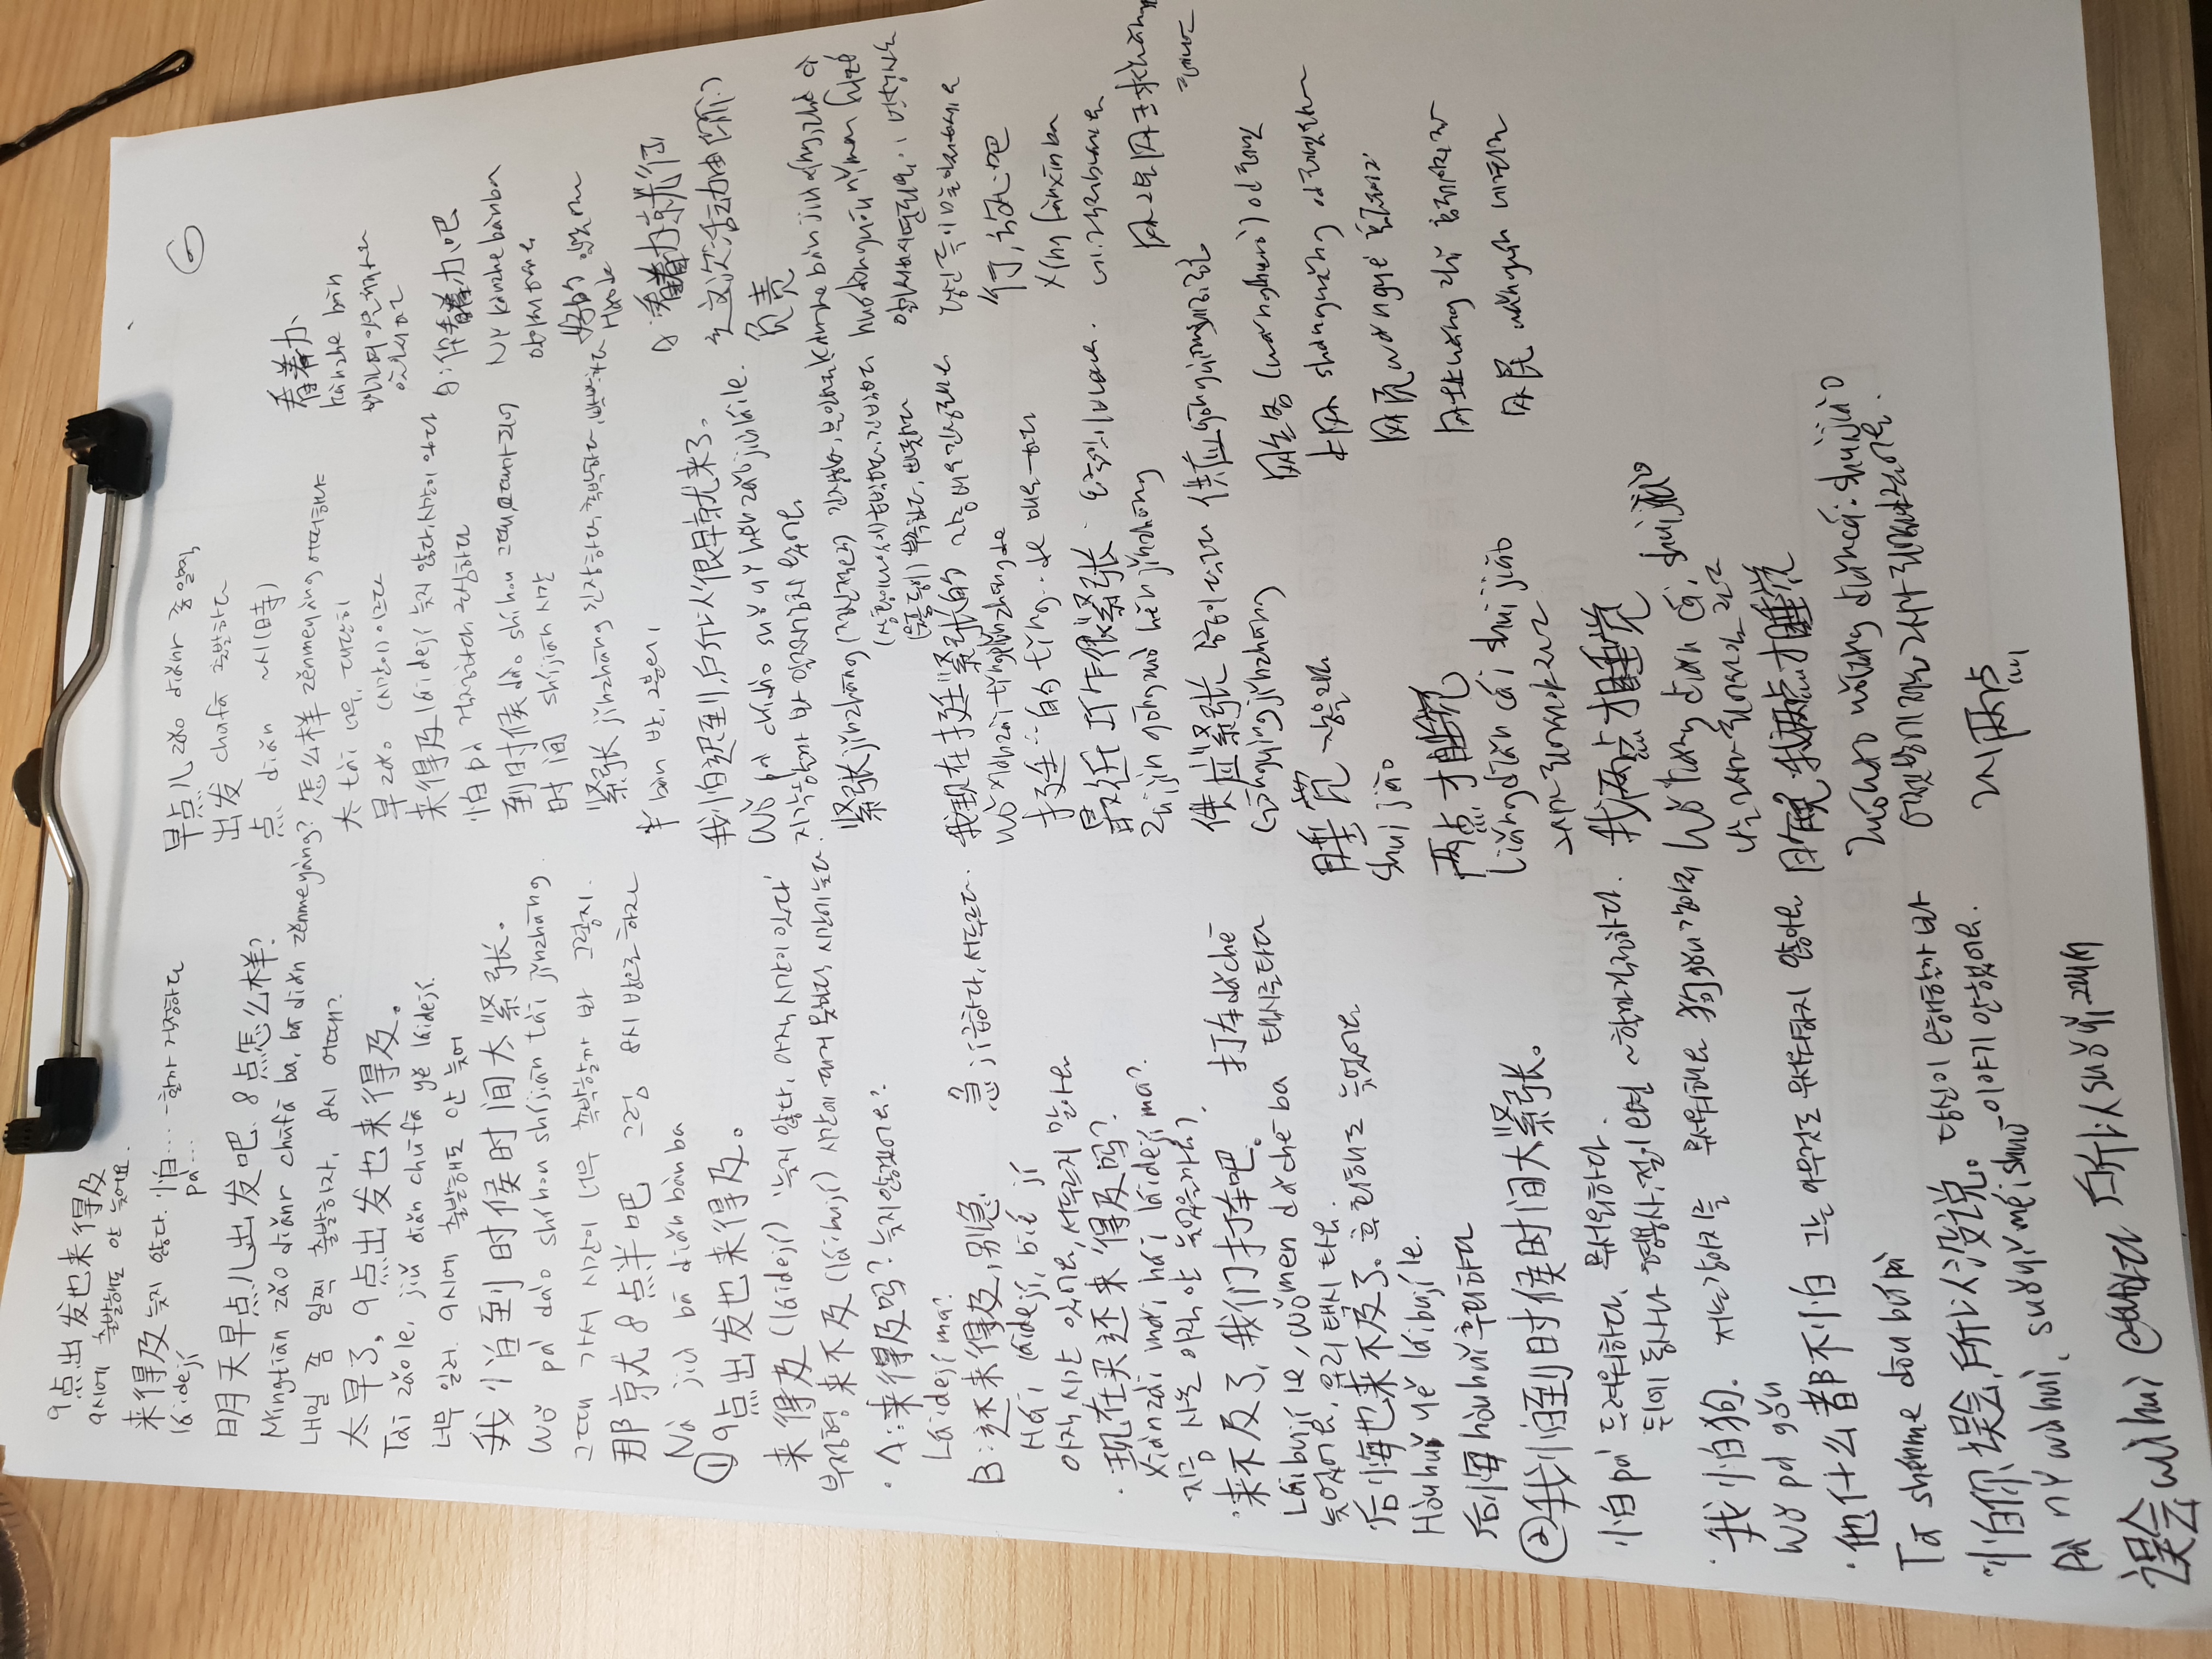 9点出发也来得及
9시에 출발해도 안 늦어요.
来得及 늦지 않다. 怕… ~할까 걱정하다
láidejí pà…
明天早点儿出发吧. 8点怎么样?
Míngtiān zǎo diǎnr chūfā ba, bā diǎn zěnmeyàng?
내일 좀 일찍 출발하자, 8시 어때?
太早了, 9点出发也来得及。
Tài zǎo le, jiǔ diǎn chūfā yě láidejí.
너무 일러. 9시에 출발해도 안 늦어
我怕到时候时间太紧张。
Wǒ pà dào shíhou shíjiān tài jǐnzhāng.
그때 가서 시간이 너무 촉박할까 봐 그렇지.
那就8点半吧 그럼 8시 반으로 하자
Nà jiù bā diǎn bàn ba
① 9点出发也来得及。
来得及 (láidejí) '늦지 않다, 아직 시간이 있다'
부정형 来不及 (láibují) 시간에 대지 못하다, 시간에 늦다.
· A: 来得及吗? 늦지않겠어요?
Láidejí ma?
B: 还来得及, 别急. 急 jí 급하다, 서두르다.
Hái láidejí, bié jí
아직 시간 있어요, 서두르지 말아요
· 现在买还来得及吗?
Xiànzài mǎi hái láidejí ma?
지금 사는 아직 안 늦었을까요?
· 来不及了, 我们打车吧。 打车 dǎchē
Láibují le, wǒmen dǎchē ba 택시로 타다
늦었어요, 우리 택시 타요.
后悔也来不及了。 후회해도 늦었어요
Hòuhuǐ yě láibují le.
后悔 hòuhuǐ 후회하다
② 我怕到时候时间太紧张。
怕 pà 두려워하다, 무서워하다.
뒤에 동사나 형용사, 절이 오면 ~할까 걱정하다.
· 我怕狗. 저는 강아지를 무서워해요 狗 gǒu 강아지
Wǒ pà gǒu
· 他什么都不怕 그는 아무것도 무서워하지 않아요
Tā shénme dōu bú pà
· 怕你误会, 所以没说。 당신이 오해할까 봐
Pà nǐ wùhuì, suǒyǐ méi shuō 이야기 안했어요.
误会 wùhuì 오해하다 所以 suǒyǐ 그래서
早点儿 zǎo diǎnr 좀 일찍
出发 chūfā 출발하다
点 diǎn ~시(時)
怎么样 zěnmeyàng 어떠하냐
太 tài 너무, 대단히
早 zǎo (시간이) 이르다
来得及 láidejí 늦지 않다, 시간이 있다
怕 pà 걱정하다, 근심하다
到时候 dào shíhou 그때, 그때가 되어
时间 shíjiān 시간
紧张 jǐnzhāng 긴장하다, 촉박하다, 빡빡하다
半 bàn 반, 2분의 1
我怕迟到, 所以很早就来了。
Wǒ pà chídào suǒyǐ hěn zǎo jiù lái le.
지각할까 봐 일찌감치 왔어요
紧张 jǐnzhāng (정신적으로) 긴장하다, 불안하다
(물품 등이) 부족하다, 빠듯하다
我现在挺紧张的 지금 매우 긴장돼요
Wǒ xiànzài tǐng jǐnzhāng de
挺…的 tǐng…de 매우 ~하다
最近工作很紧张. 요즘 일이 바빠요.
Zuìjìn gōngzuò hěn jǐnzhāng
供应紧张 供应
Gōngyìng jǐnzhāng
睡觉 잠을 자다
shuì jiào
两点才睡觉
Liǎng diǎn cái shuì jiào
我两点才睡觉
Wǒ liǎng diǎn cái shuì jiào
昨晚我两点才睡觉
2시 两点
看着办
kànzhe bàn
A: 你看着办吧
Nǐ kànzhe bàn ba
好的
Hǎo de
A: 看着办就行,
这次活动由你们
负责
kànzhe bàn jiù xíng, zhè cì
huódòng yóu nǐmen fùzé
당신들이 맡아서하세요
行, 放心吧
Xíng fàngxīn ba
上网 shàngwǎng
网页 wǎngyè 홈페이지
网址 wǎngzhǐ
网民 wǎngmín 네티즌